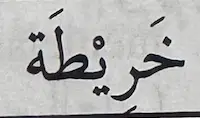 خَرِيْطَة